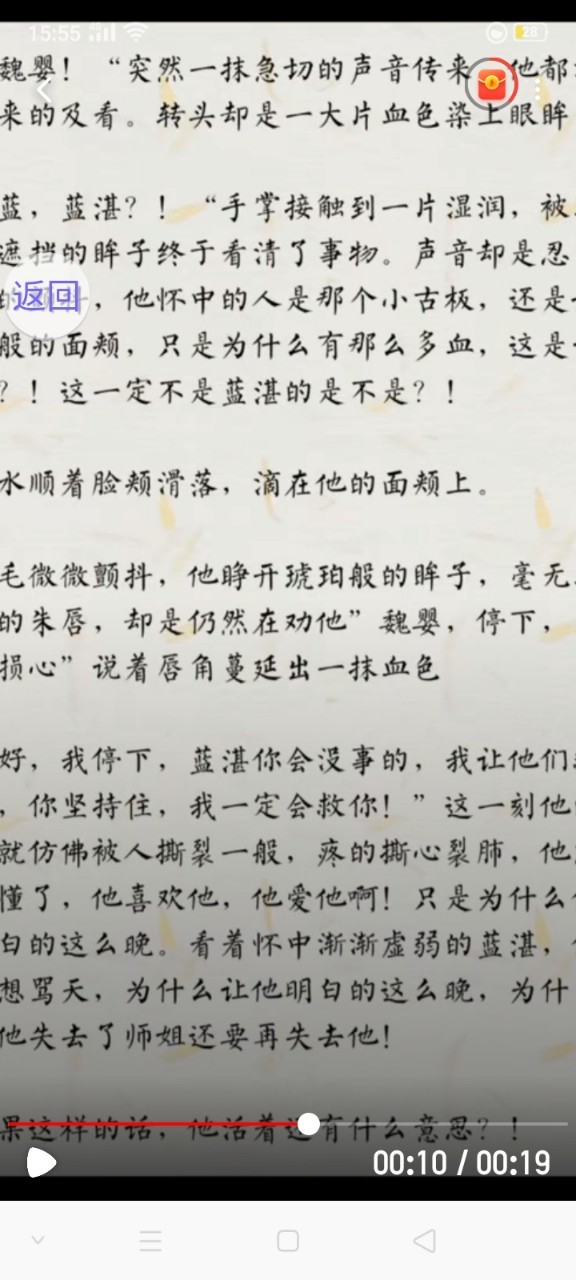 15:55
28
魏婴！“突然一抹急切的声音传来 他都
来的及看。转头却是一大片血色染上眼眸
蓝，蓝湛？！“手掌接触到一片湿润，被
遮挡的眸子终于看清了事物。声音却是忍
返回
，他怀中的人是那个小古板，还是
般的面颊，只是为什么有那么多血，这是
？！这一定不是蓝湛的是不是？！
水顺着脸颊滑落，滴在他的面颊上。
毛微微颤抖，他睁开琥珀般的眸子，毫无
的朱唇，却是仍然在劝他”魏婴，停下，
损心”说着唇角蔓延出一抹血色
好，我停下，蓝湛你会没事的，我让他们
，你坚持住，我一定会救你！”这一刻他
就仿佛被人撕裂一般，疼的撕心裂肺，他
懂了，他喜欢他，他爱他啊！只是为什么
白的这么晚。看着怀中渐渐虚弱的蓝湛，
想骂天，为什么让他明白的这么晚，为什
他失去了师姐还要再失去他！
果这样的话，他活着还有什么意思？！
00:10 / 00:19